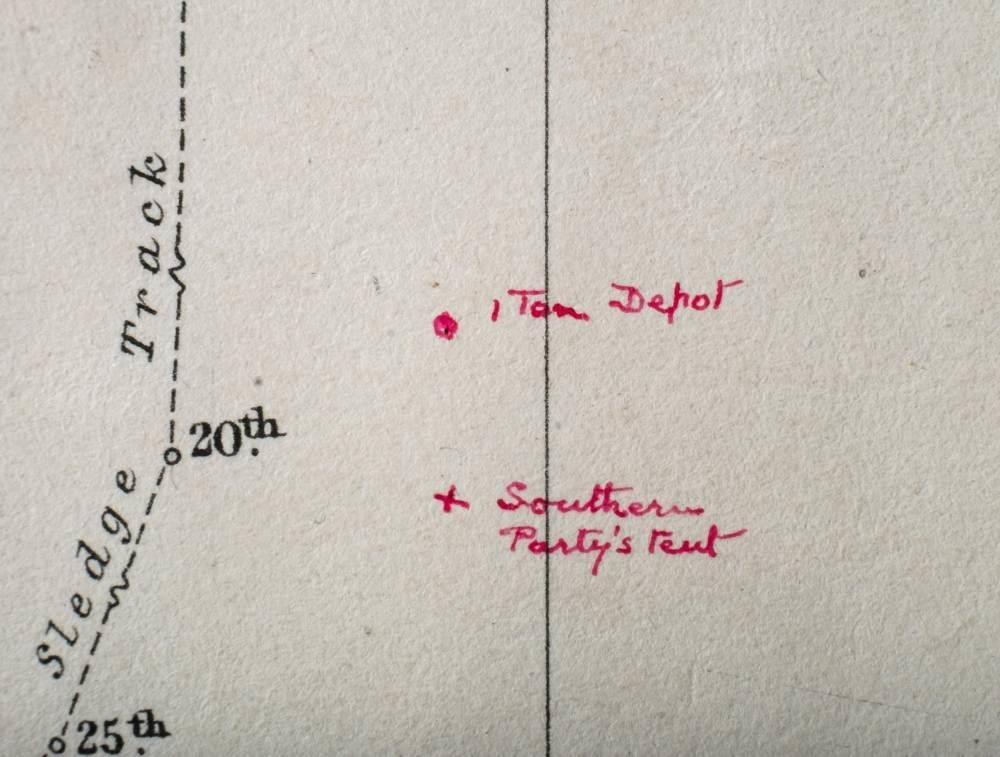 Sledge Track
1 Ton Depot
20th.
Southern
Party's tent
25th.